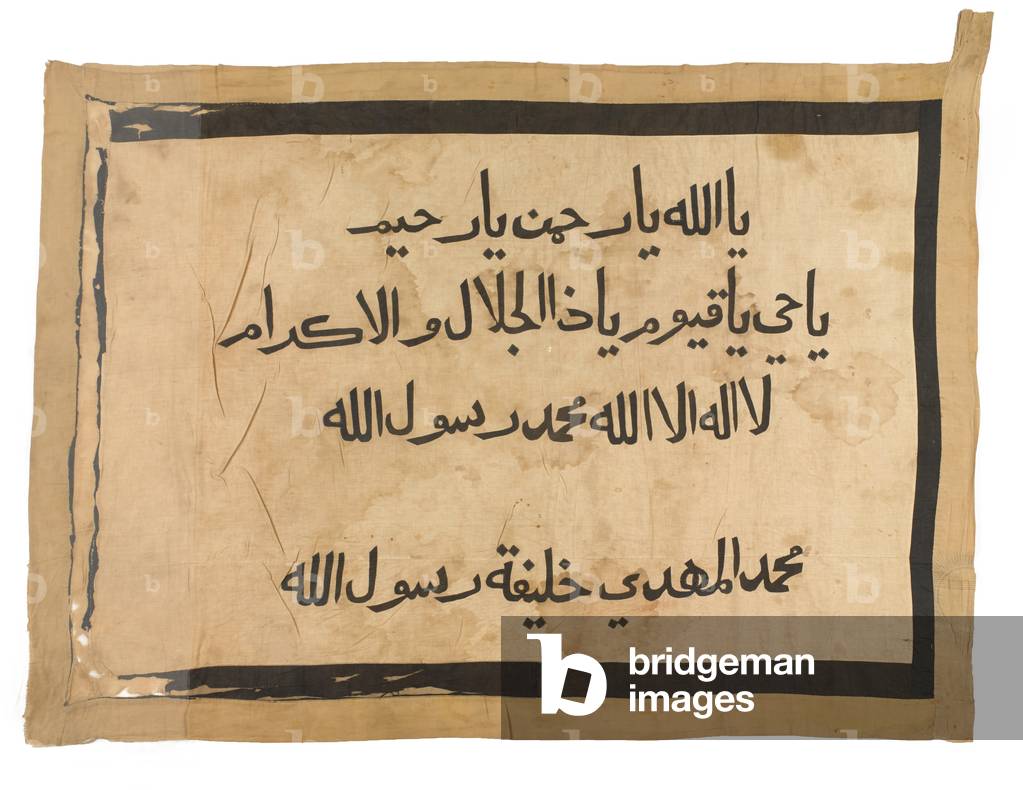 يا الله يا رحمن يا رحيم
يا حي يا قيوم يا ذا الجلال والاكرام
لا اله الا الله محمد رسول الله
محمد المهدي خليفة رسول الله
b bridgeman
images